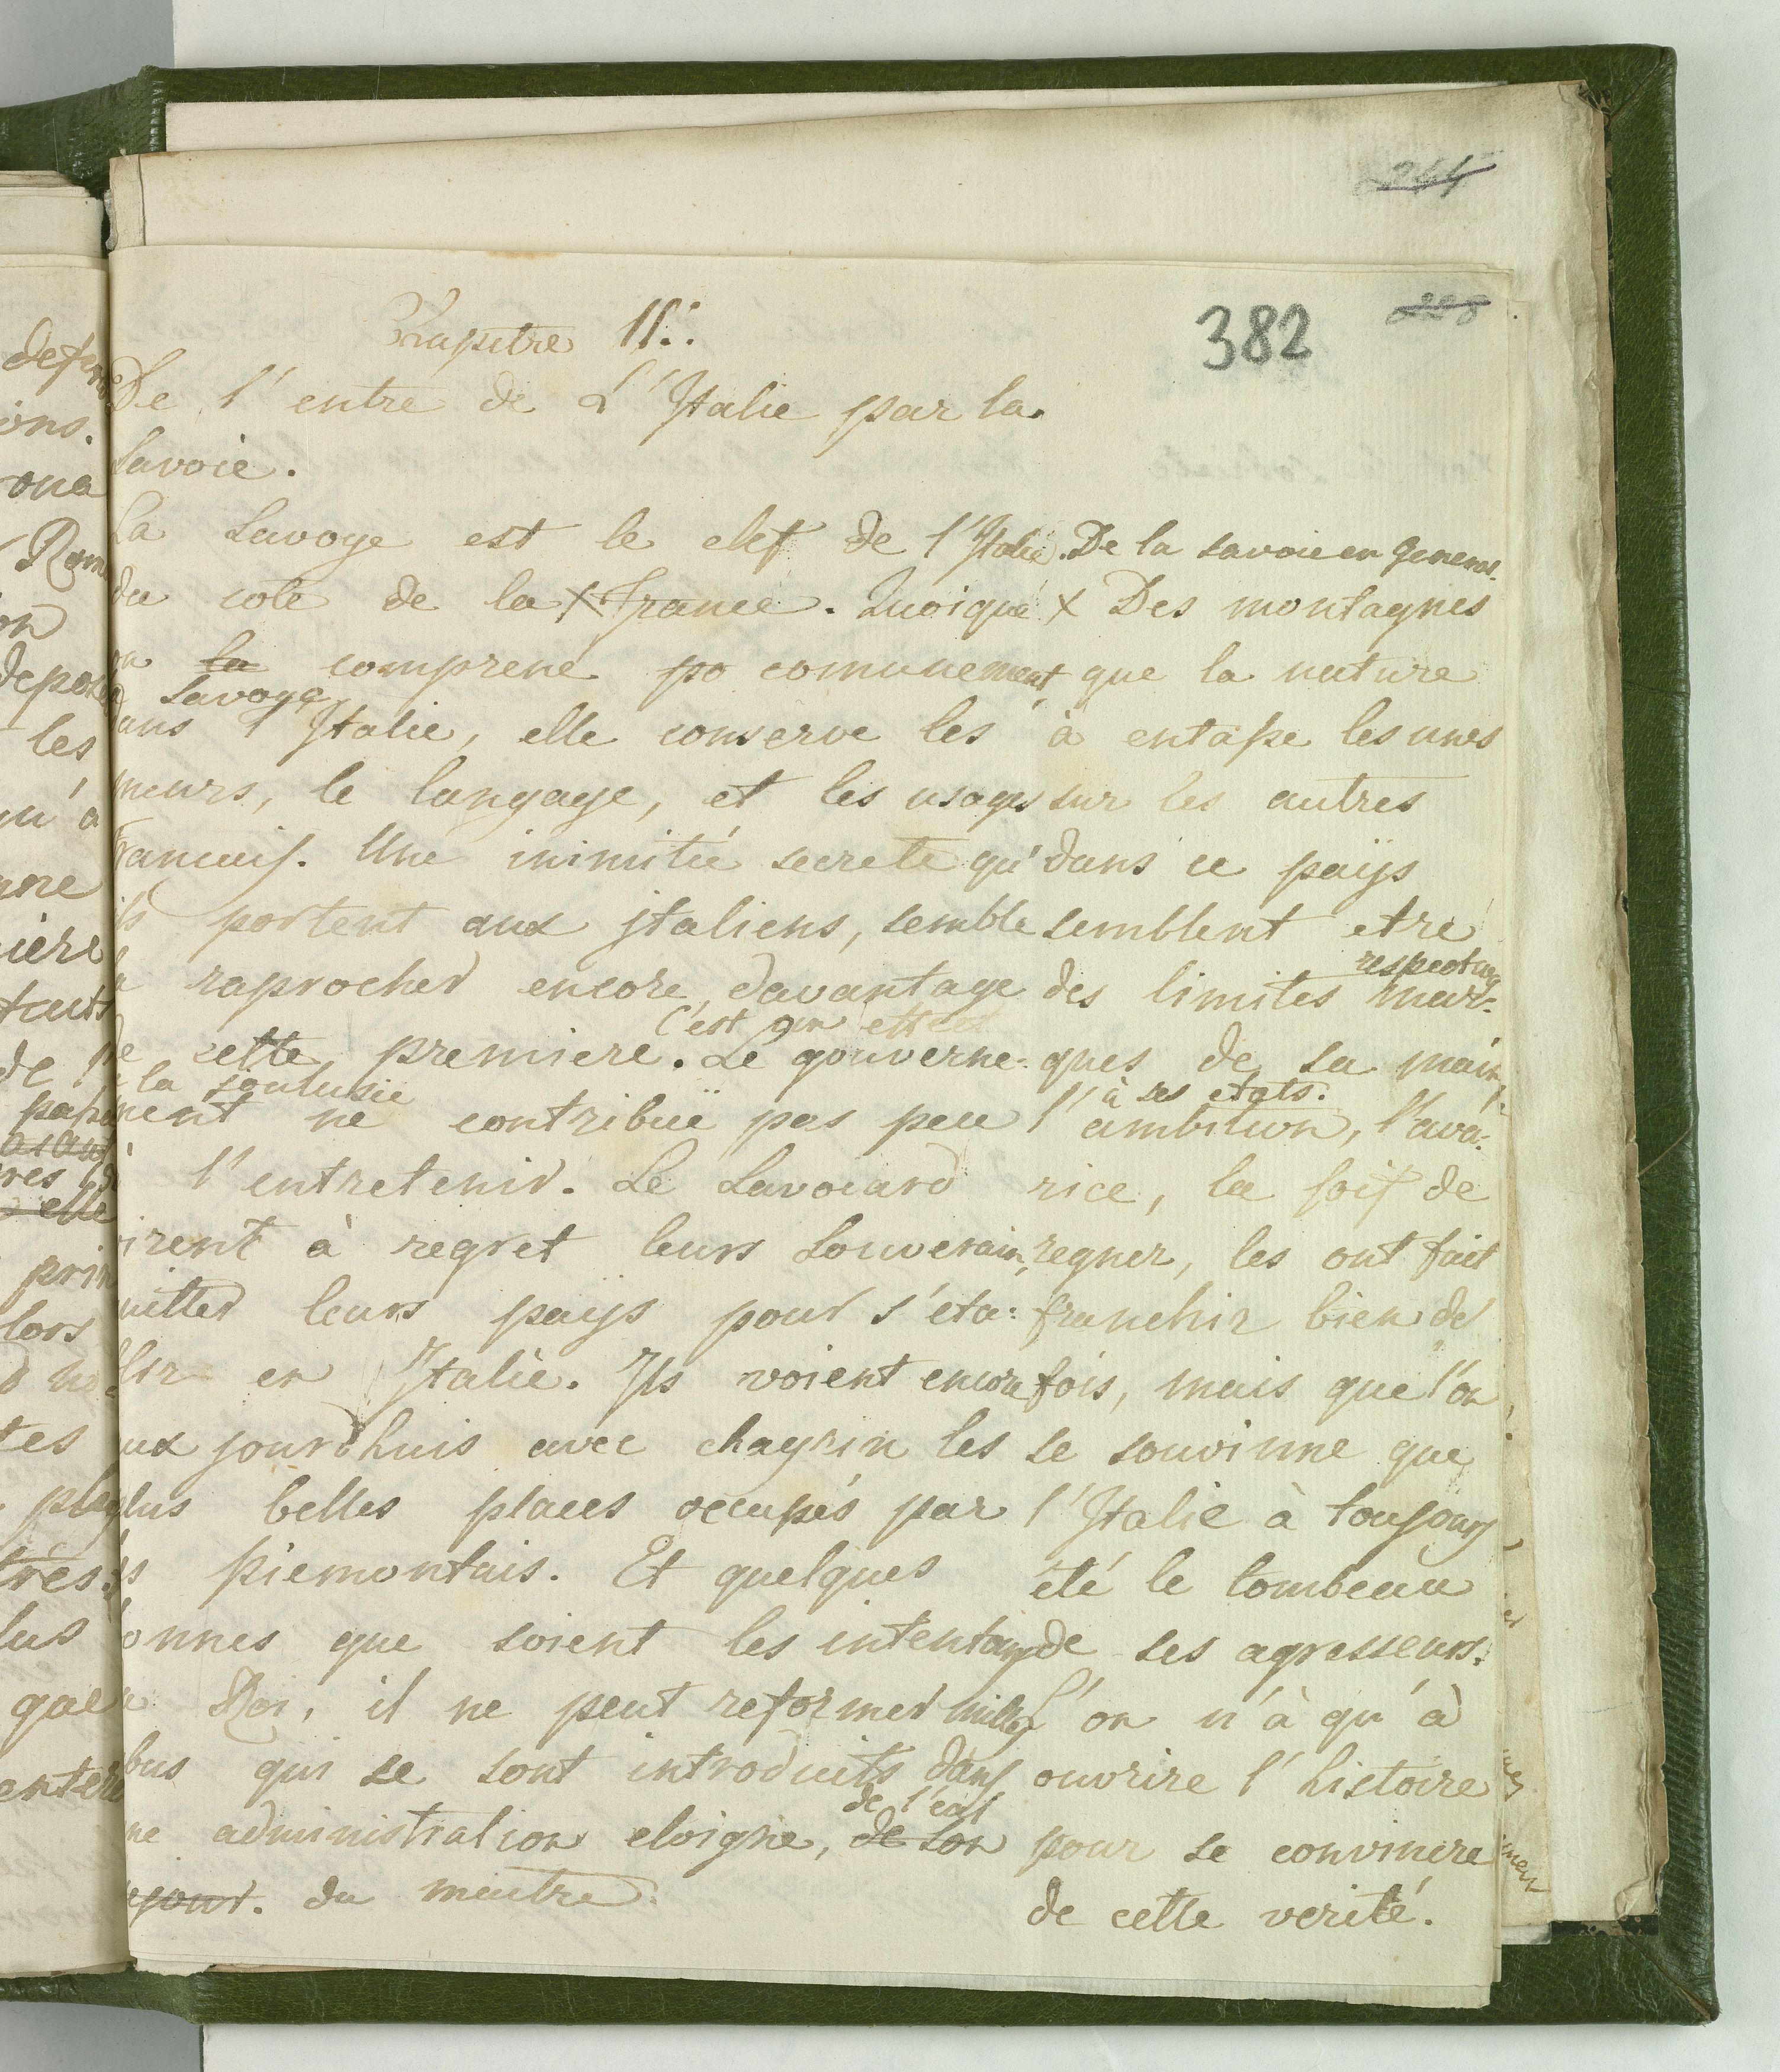 244
228
382
Chapitre II.
De l'entre de L'Italie par la
Savoie.
La Savoye est le clef de l'Italie
du coté de la X France. Quoique
on la comprene po comunement
Savoye
dans l'Italie, elle conserve les
meurs, le langage, et les usages
francais. Une inimitié secrete qu'
ils portent aux jtaliens, semble
la raprocher encore davantage
c'est un effect
de cette premiere. Le gouverne-
de la
ment ne contribuë pas peu
à l'entretenir. Le Savoiard
virent à regret leurs Souverain,
quitter leurs païs pour s'eta:
blir en Jtalie. Ils voient encore
aux jourdhuis avec chagrin les
plus belles places occupés par
les piemontais. Et quelques
bonnes que soient les intentions
du Roi, il ne peut reformer milles
abus qui se sont introduits dans
de l'eul
une administration eloigné, de son
sejour. du meutre.
De la savoie en general.
X Des montagnes
que la nature
à entassé les unes
sur les autres
dans ce païs
semblent etre
respectives
des limites mar-
ques de sa main
à ses etats.
l'ambition, l'ava:
rice, la soif de
regner, les ont fait
franchir bien de
fois, mais que l'on
se souvinne que
l'Jtalie à toujours
été le tombeau
de ses agresseurs.
L'on n'à qu'à
ouvrire l'histoire
pour se convincre
de cette verité.